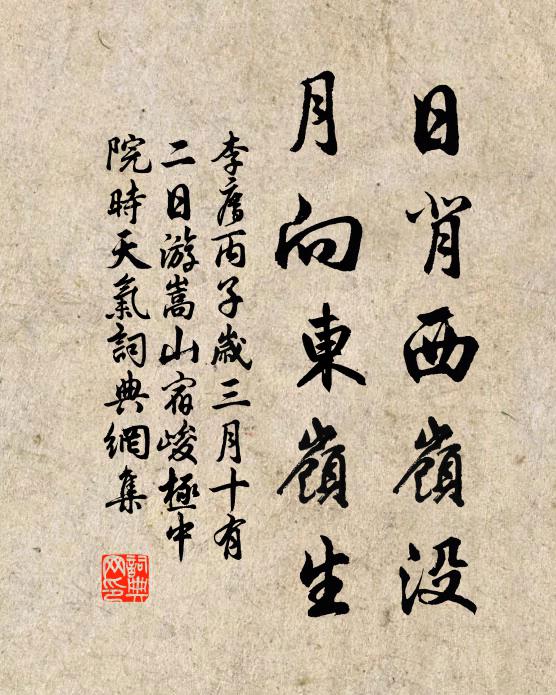 日背西嶺没
月向東嶺生
李廌丙子歲三月十有
二日游嵩山宿峻極中
院時天氣詞典網集
詞典
网印